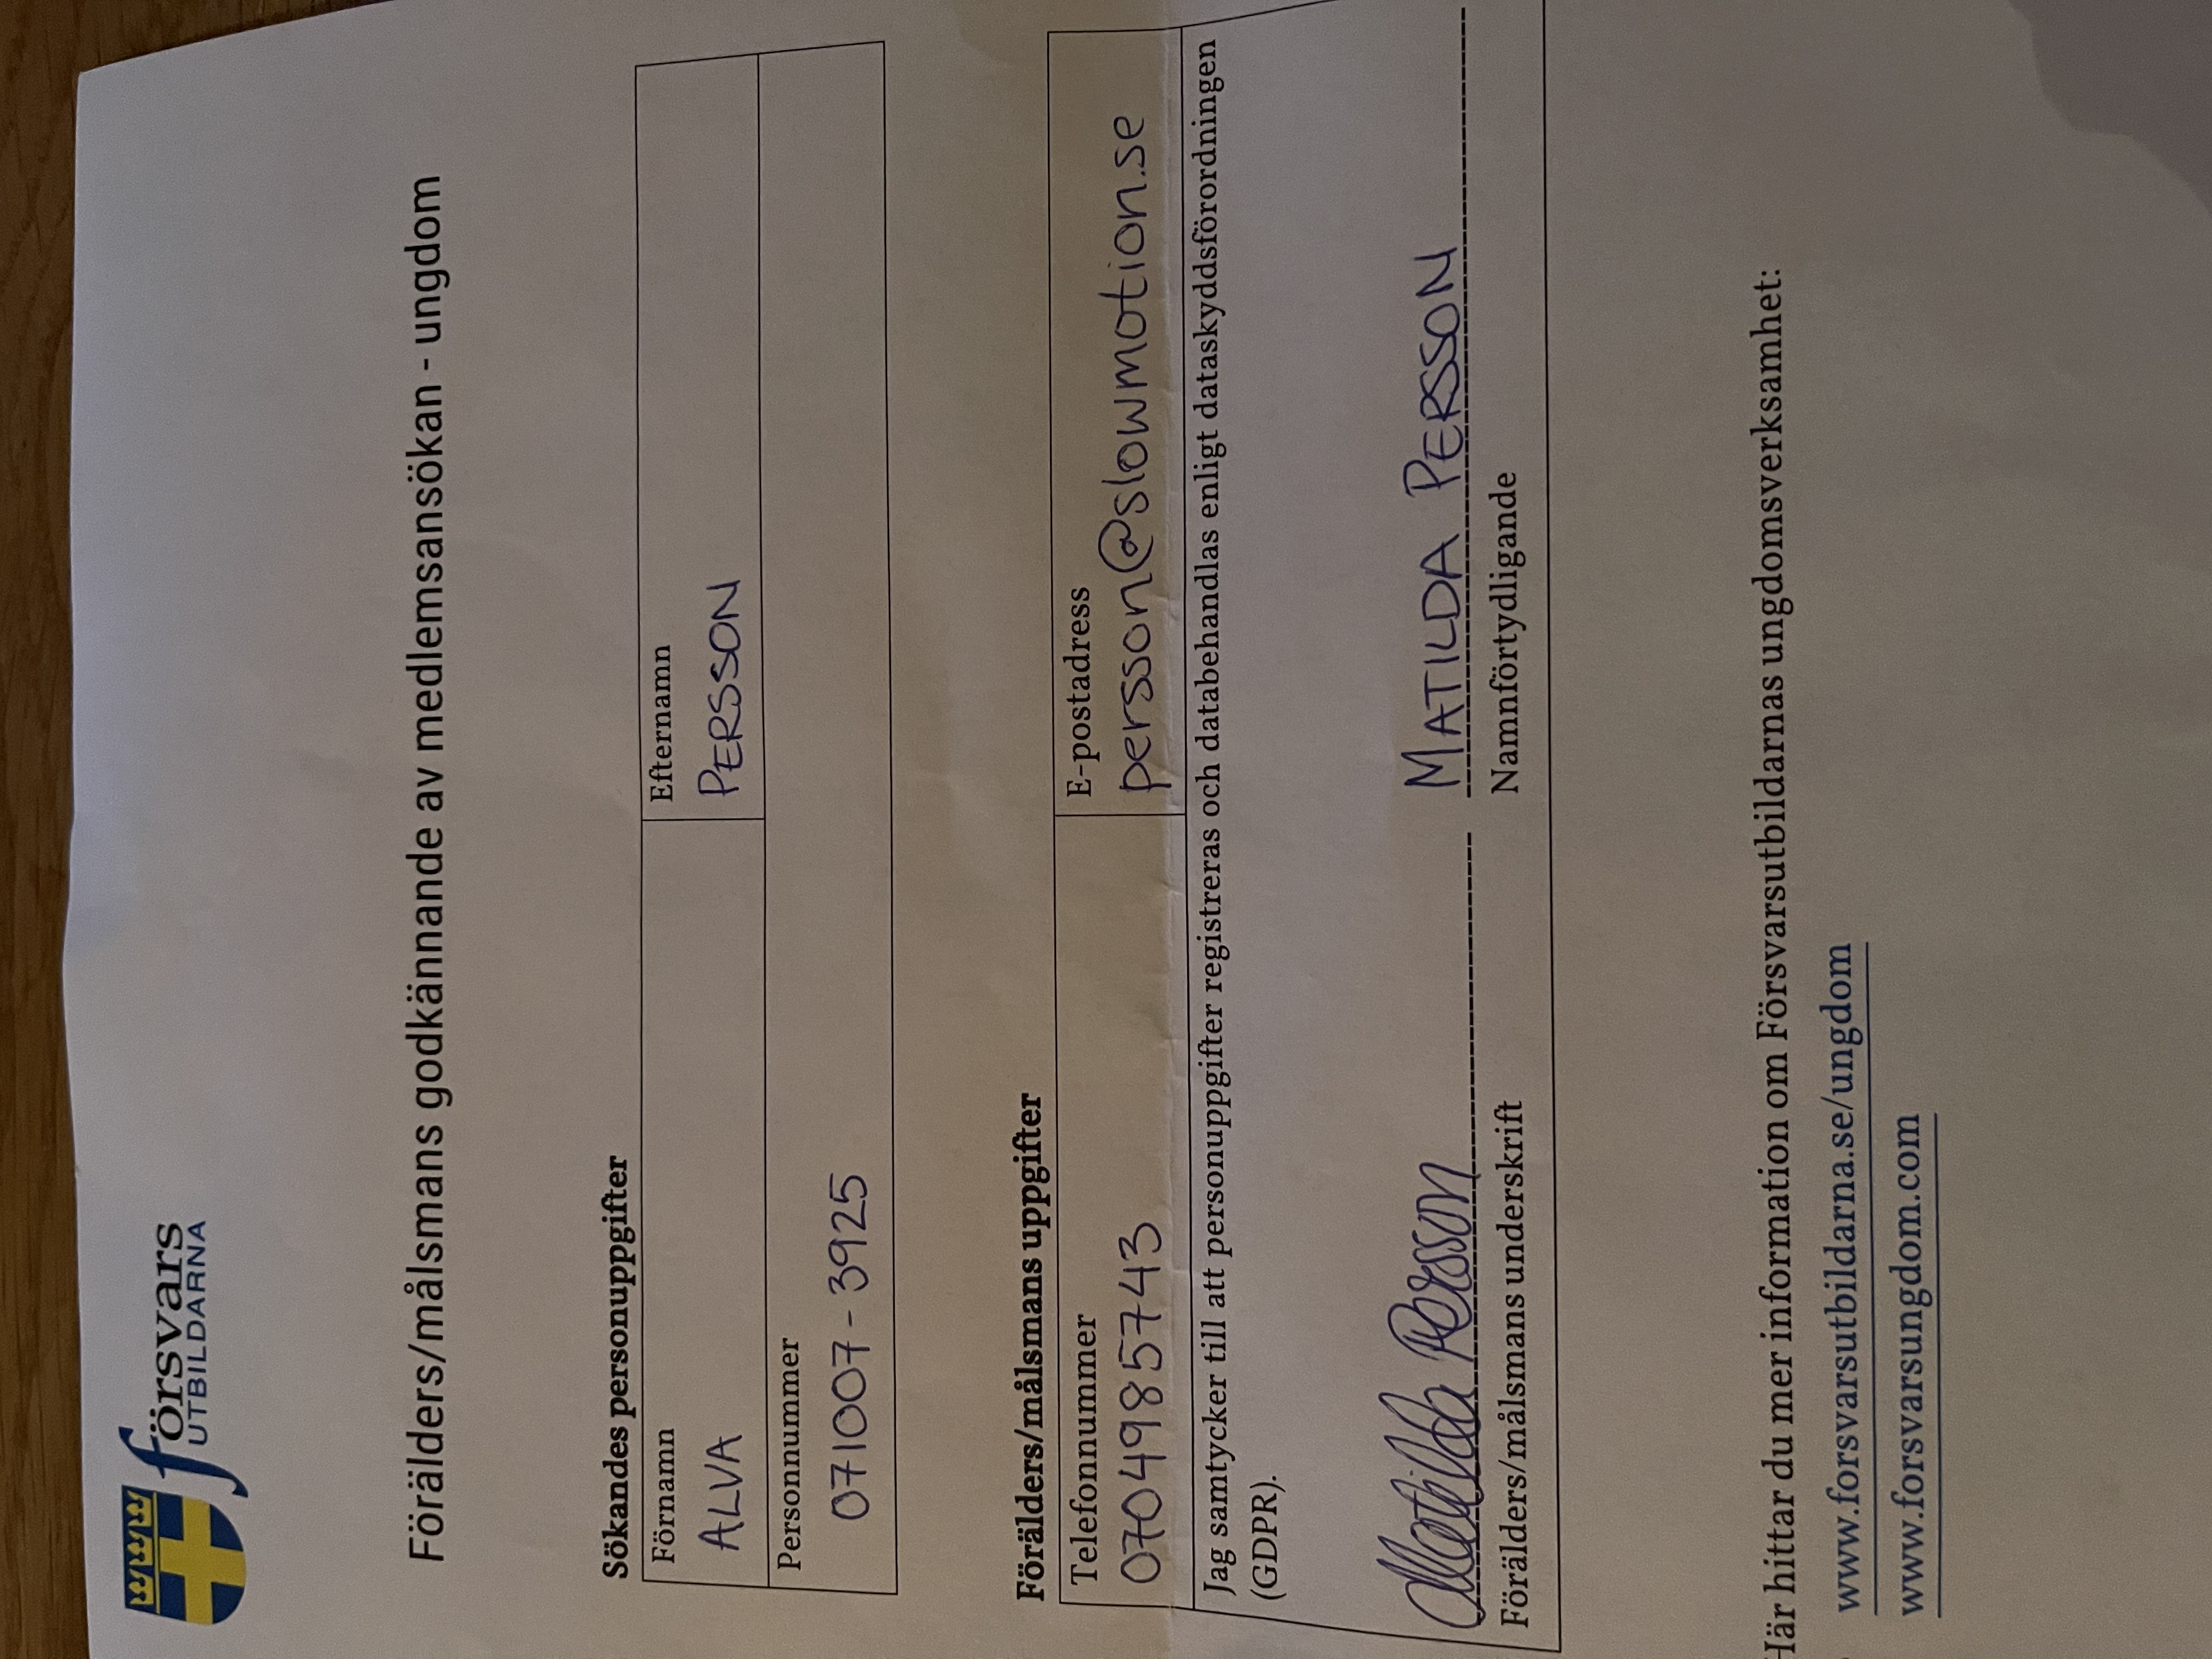 försvars
UTBILDARNA
Förälders/målsmans godkännande av medlemsansökan - ungdom
Sökandes personuppgifter
Förnamn
ALVA
Efternamn
PERSSON
Personnummer
071007-3925
Förälders/målsmans uppgifter
Telefonnummer
0704985743
E-postadress
persson@slowmotion.se
Jag samtycker till att personuppgifter registreras och databehandlas enligt dataskyddsförordningen
(GDPR).
Matilda Persson
MATILDA PERSSON
Förälders/målsmans underskrift
Namnförtydligande
Här hittar du mer information om Försvarsutbildarnas ungdomsverksamhet:
www.forsvarsutbildarna.se/ungdom
www.forsvarsungdom.com